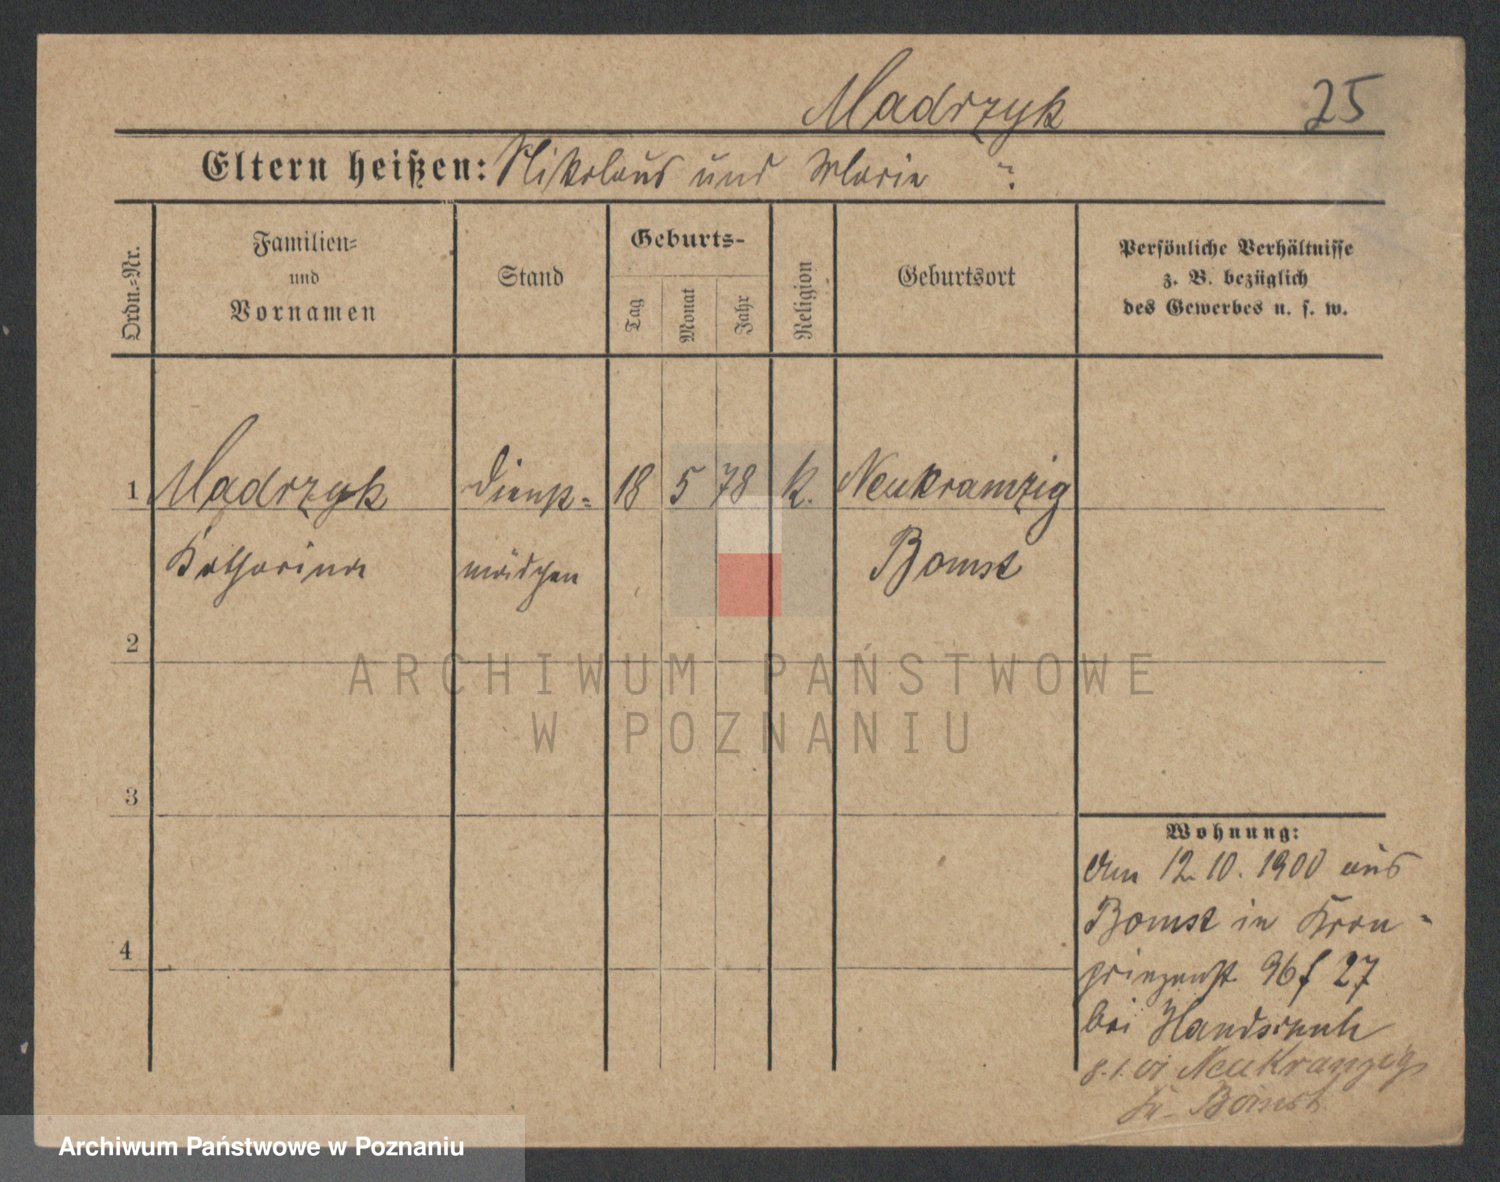 Madrzyk 25
Eltern heißen: Nikolaus und Marie ?
Ordn.-Nr.
Familien-
und
Vornamen
Stand
Geburts-
Tag
Monat
Jahr
Religion
Geburtsort
Persönliche Verhältnisse
z. B. bezüglich
des Gewerbes u. s. w.
1 Madrzyk Dienst- 18 5 78 k. Neukramzig
Katharina mädchen Bomst
2
ARCHIWUM PAŃSTWOWE
W POZNANIU
3
Wohnung:
Am 12.10.1900 aus
Bomst in Kron-
4
prinzenst 96 f 27
bei
8.1.01 Neu Kranzig
Kr. Bomst
Archiwum Państwowe w Poznaniu